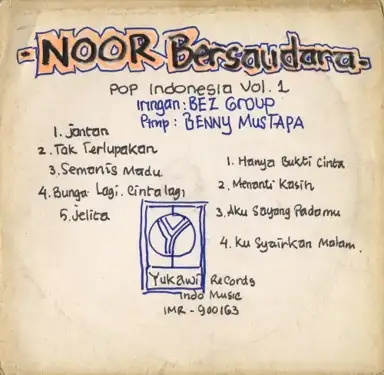 - NOOR Bersaudara -
POP Indonesia Vol. 1
Iringan : BEZ GROUP
Pimp : BENNY MUSTAPA
1. Jantan
2. Tak Terlupakan
3. Semanis Madu
4. Bunga Lagi. Cinta lagi
5. Jelita
1. Hanya Bukti Cinta
2. Menanti Kasih
3. Aku Sayang Padamu
4. Ku Syairkan Malam.
Yukawi Records
Indo Music
IMR - 900163